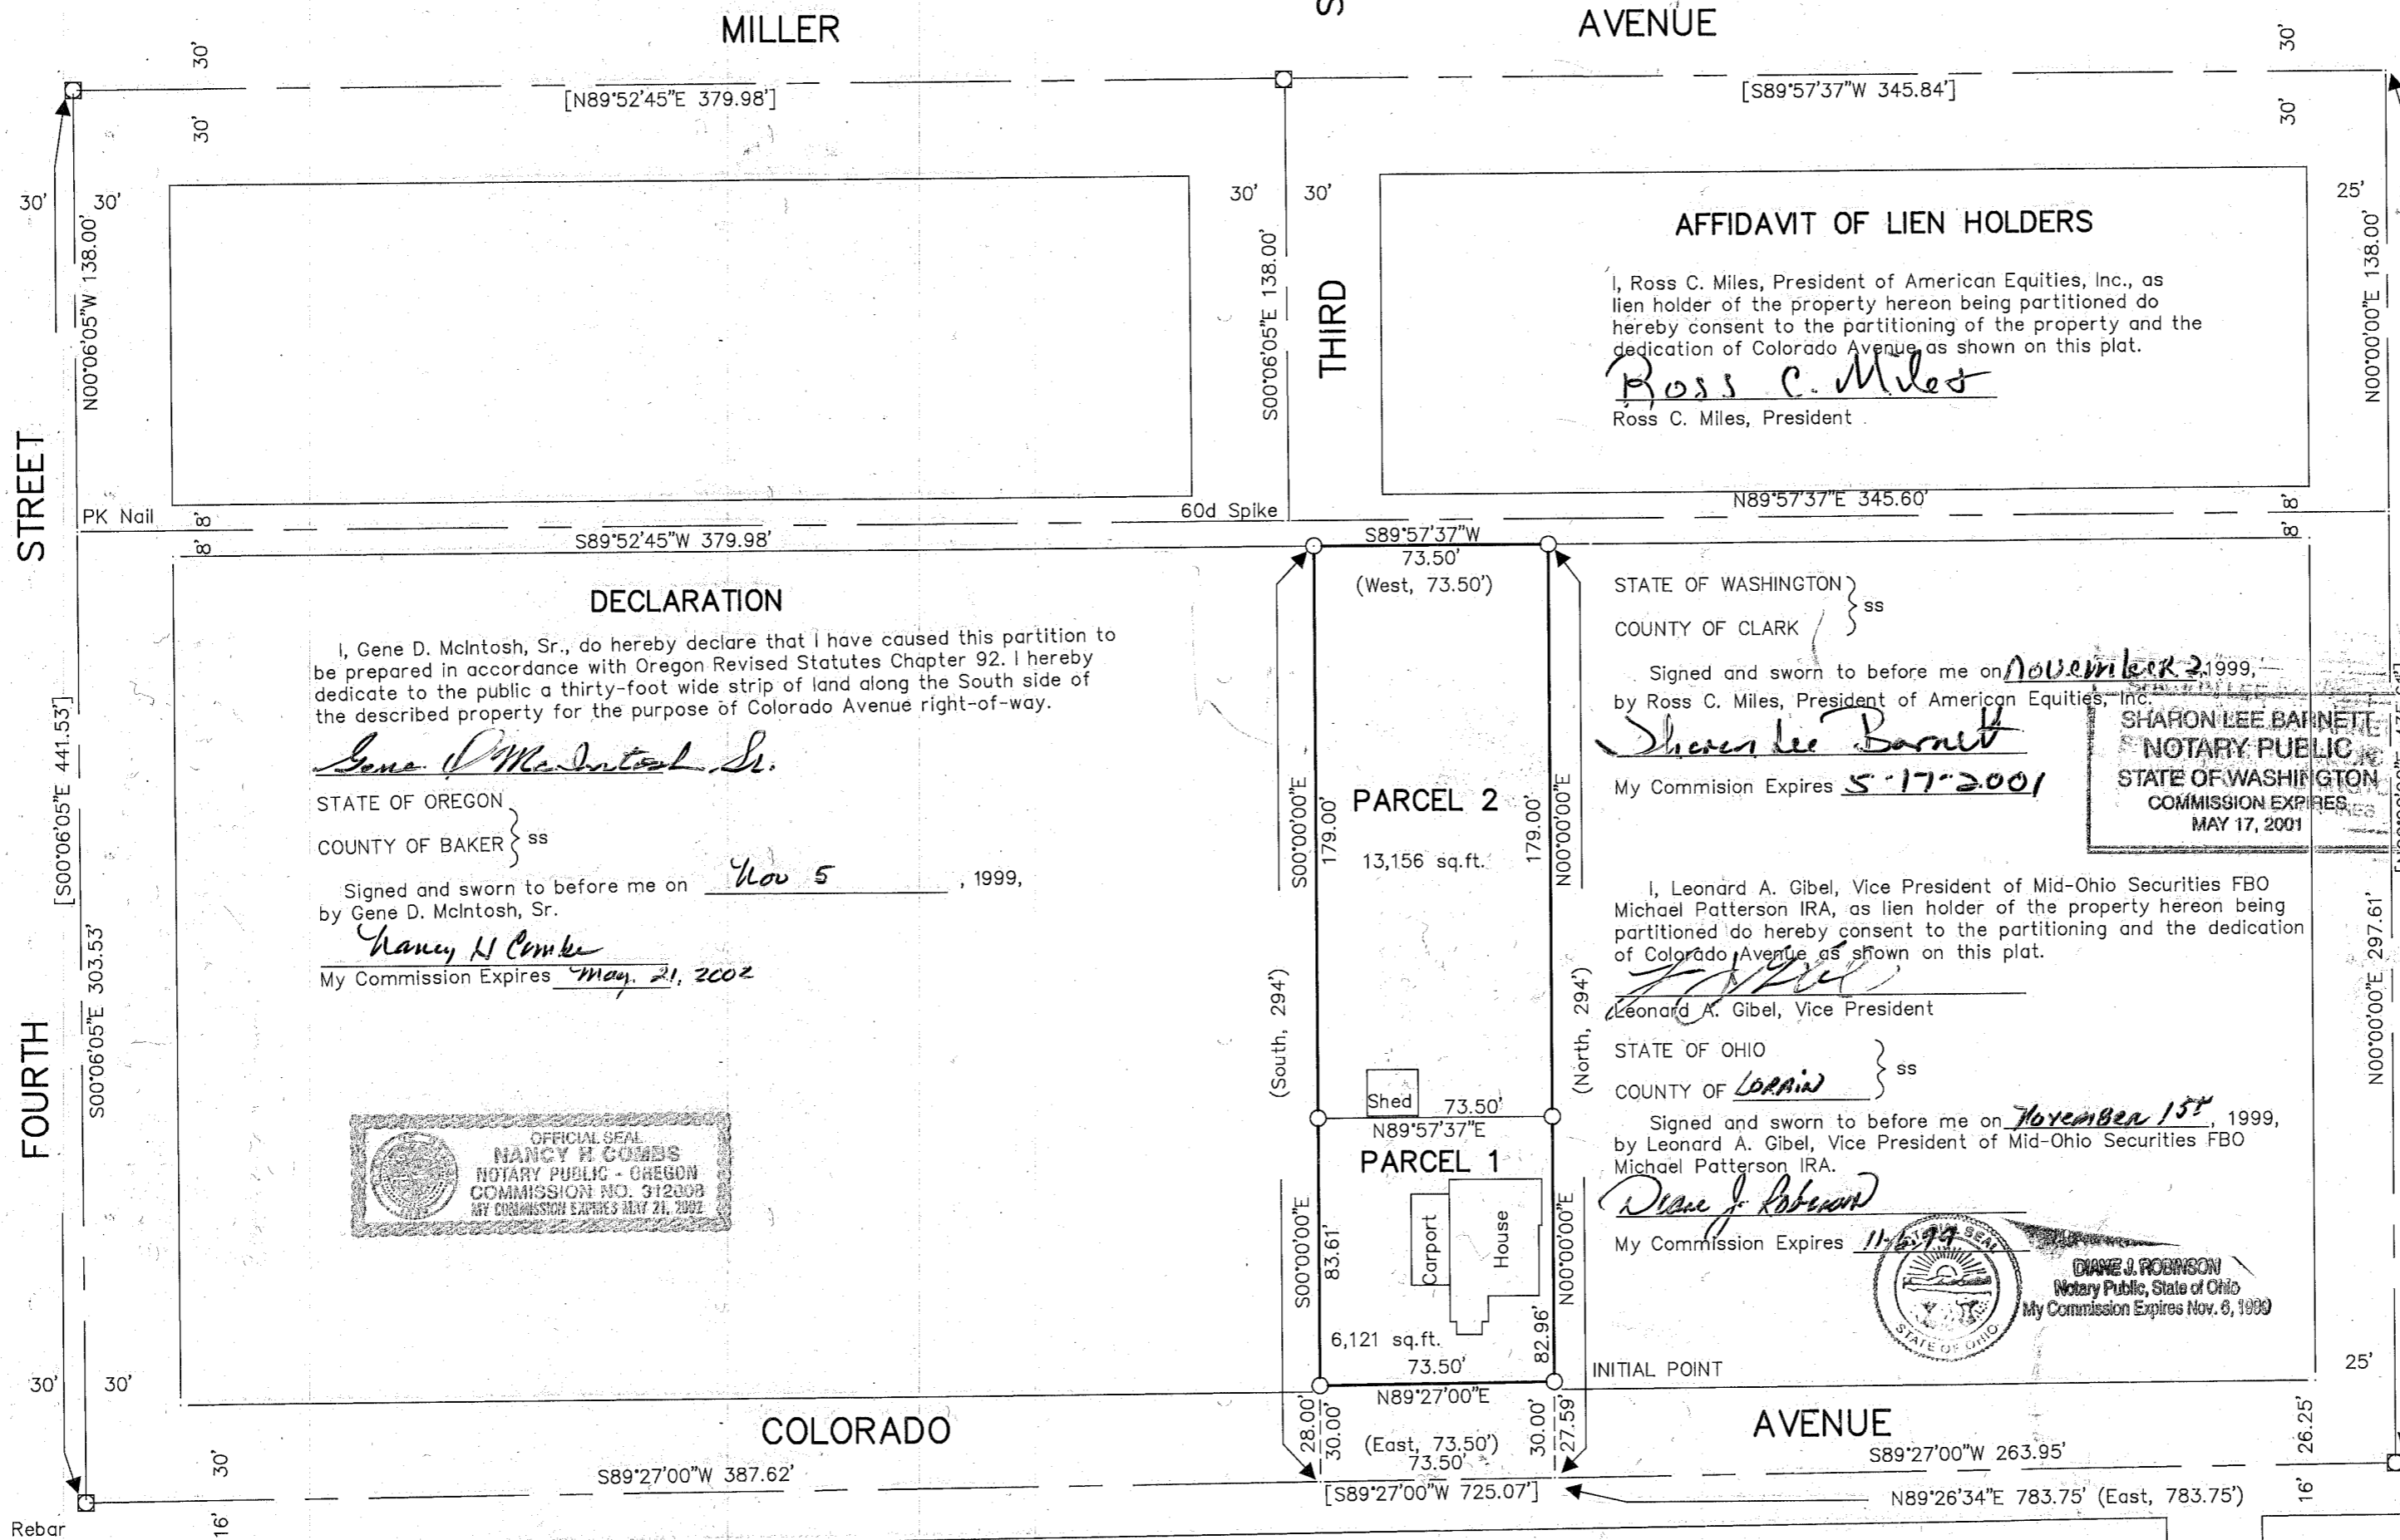 MILLER AVENUE
30'
30'
[N89°52'45"E 379.98']
[S89°57'37"W 345.84']
30'
30'
30' 30'
30' 30'
25'
N00°06'05"W 138.00'
S00°06'05"E 138.00'
N00°00'00"E 138.00'
THIRD
STREET
FOURTH
AFFIDAVIT OF LIEN HOLDERS
I, Ross C. Miles, President of American Equities, Inc., as
lien holder of the property hereon being partitioned do
hereby consent to the partitioning of the property and the
dedication of Colorado Avenue as shown on this plat.
Ross C. Miles
Ross C. Miles, President
PK Nail
8'
8'
60d Spike
S89°52'45"W 379.98'
N89°57'37"E 345.60'
8'
8'
S89°57'37"W
73.50'
(West, 73.50')
DECLARATION
I, Gene D. McIntosh, Sr., do hereby declare that I have caused this partition to
be prepared in accordance with Oregon Revised Statutes Chapter 92. I hereby
dedicate to the public a thirty-foot wide strip of land along the South side of
the described property for the purpose of Colorado Avenue right-of-way.
Gene D McIntosh Sr.
STATE OF OREGON
COUNTY OF BAKER } ss
Signed and sworn to before me on Nov 5, 1999,
by Gene D. McIntosh, Sr.
Nancy H Combs
My Commission Expires May, 21, 2002
OFFICIAL SEAL
NANCY H COMBS
NOTARY PUBLIC - OREGON
COMMISSION NO. 312008
MY COMMISSION EXPIRES MAY 21, 2002
[S00°06'05"E 441.53']
S00°06'05"E 303.53'
PARCEL 2
13,156 sq.ft.
S00°00'00"E
179.00'
179.00'
N00°00'00"E
(South, 294')
(North, 294')
Shed
73.50'
N89°57'37"E
PARCEL 1
Carport
House
S00°00'00"E
83.61'
82.96'
N00°00'00"E
6,121 sq.ft.
73.50'
N89°27'00"E
INITIAL POINT
STATE OF WASHINGTON
COUNTY OF CLARK } ss
Signed and sworn to before me on November 2, 1999,
by Ross C. Miles, President of American Equities, Inc.
Sharon Lee Barnett
My Commision Expires 5-17-2001
SHARON LEE BARNETT
NOTARY PUBLIC
STATE OF WASHINGTON
COMMISSION EXPIRES
MAY 17, 2001
I, Leonard A. Gibel, Vice President of Mid-Ohio Securities FBO
Michael Patterson IRA, as lien holder of the property hereon being
partitioned do hereby consent to the partitioning and the dedication
of Colorado Avenue as shown on this plat.
Leonard A. Gibel, Vice President
STATE OF OHIO
COUNTY OF LORAIN } ss
Signed and sworn to before me on November 1st, 1999,
by Leonard A. Gibel, Vice President of Mid-Ohio Securities FBO
Michael Patterson IRA.
Diane J. Robinson
My Commission Expires 11-6-99
STATE OF OHIO
DIANE J. ROBINSON
Notary Public, State of Ohio
My Commission Expires Nov. 6, 1999
N00°00'00"E 297.61'
30' 30'
25'
COLORADO AVENUE
30'
16'
S89°27'00"W 387.62'
28.00'
30.00'
(East, 73.50')
73.50'
30.00'
27.59'
[S89°27'00"W 725.07']
S89°27'00"W 263.95'
26.25'
16'
N89°26'34"E 783.75' (East, 783.75')
Rebar